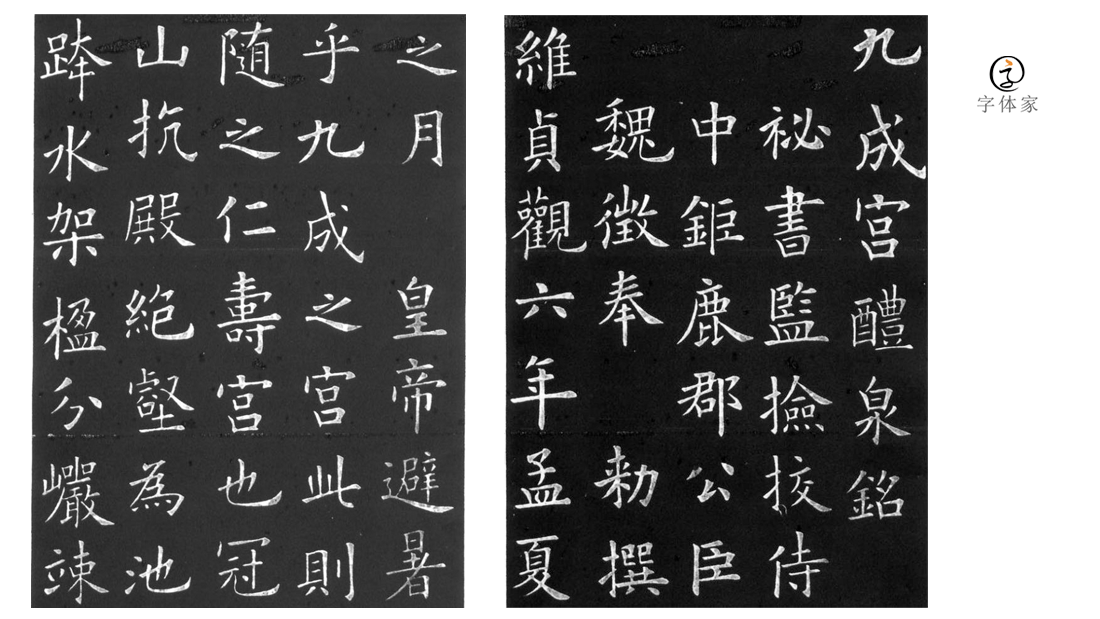 九成宫醴泉銘
祕書監撿挍侍
中鉅鹿郡公臣
魏徴奉 勑撰
維貞觀六年孟夏
之月 皇帝避暑
乎九成之宫此則
随之仁壽宫也冠
山抗殿絶壑為池
跨水架楹分巗竦
字体家